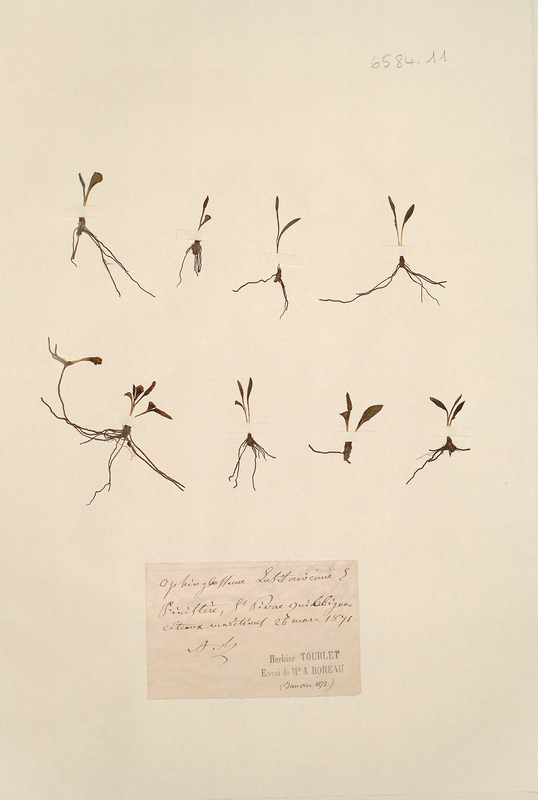 6584.11
Ophioglossum Lusitanicum L
Finistère, St Pierre quilbignon
côteaux maritimes 26 mars 1871
Herbier TOURLET
Envoi de Mr A. BOREAU
(Janvier 1873)